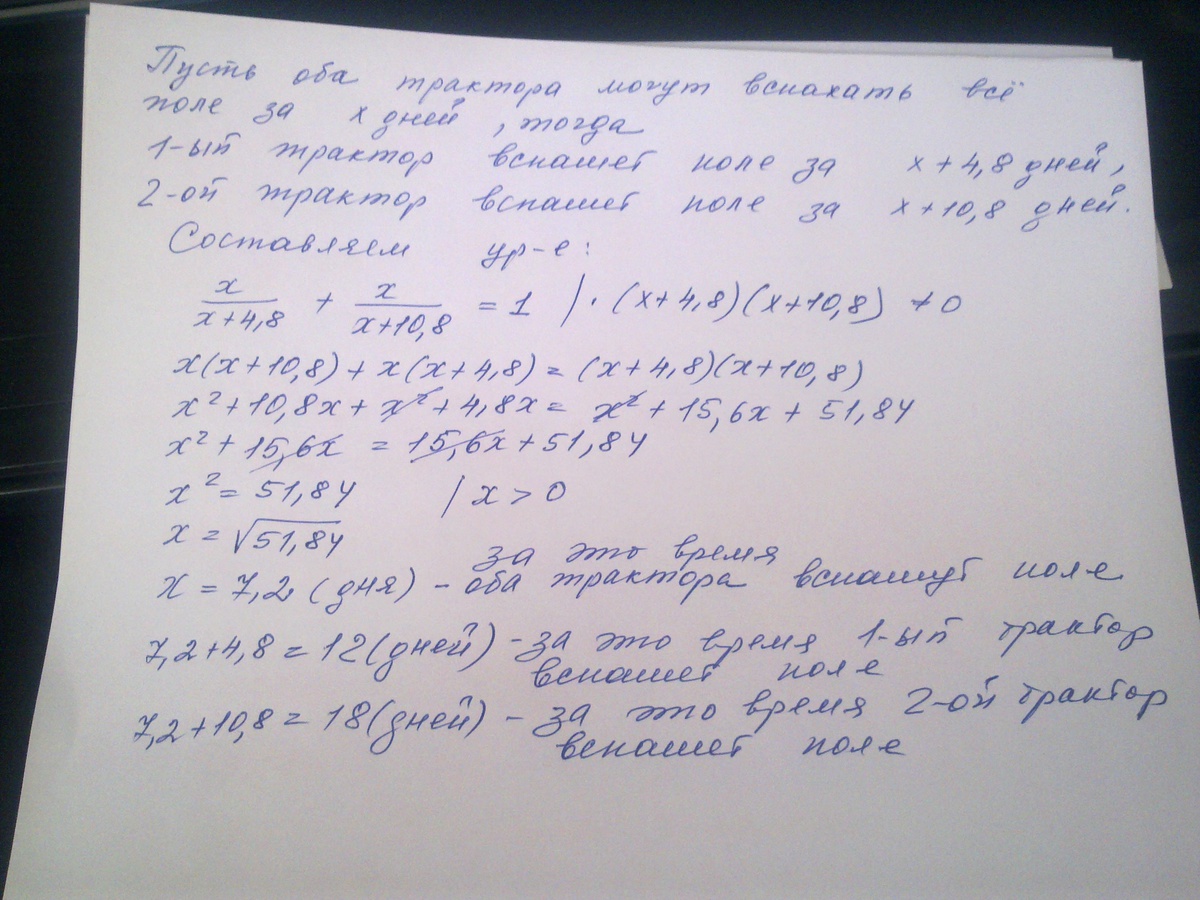 Пусть оба трактора могут вспахать всё
поле за x дней, тогда
1-ый трактор вспашет поле за x+4,8 дней,
2-ой трактор вспашет поле за x+10,8 дней.
Составляем ур-е:
x/(x+4,8) + x/(x+10,8) = 1 |·(x+4,8)(x+10,8) ≠0
x(x+10,8)+x(x+4,8)=(x+4,8)(x+10,8)
x²+10,8x+x²+4,8x= x²+15,6x+51,84
x²+15,6x = 15,6x+51,84
x²=51,84 | x>0
x=√51,84
за это время
x=7,2 (дня) - оба трактора вспашут поле
7,2+4,8=12(дней) - за это время 1-ый трактор
вспашет поле
7,2+10,8=18(дней) - за это время 2-ой трактор
вспашет поле